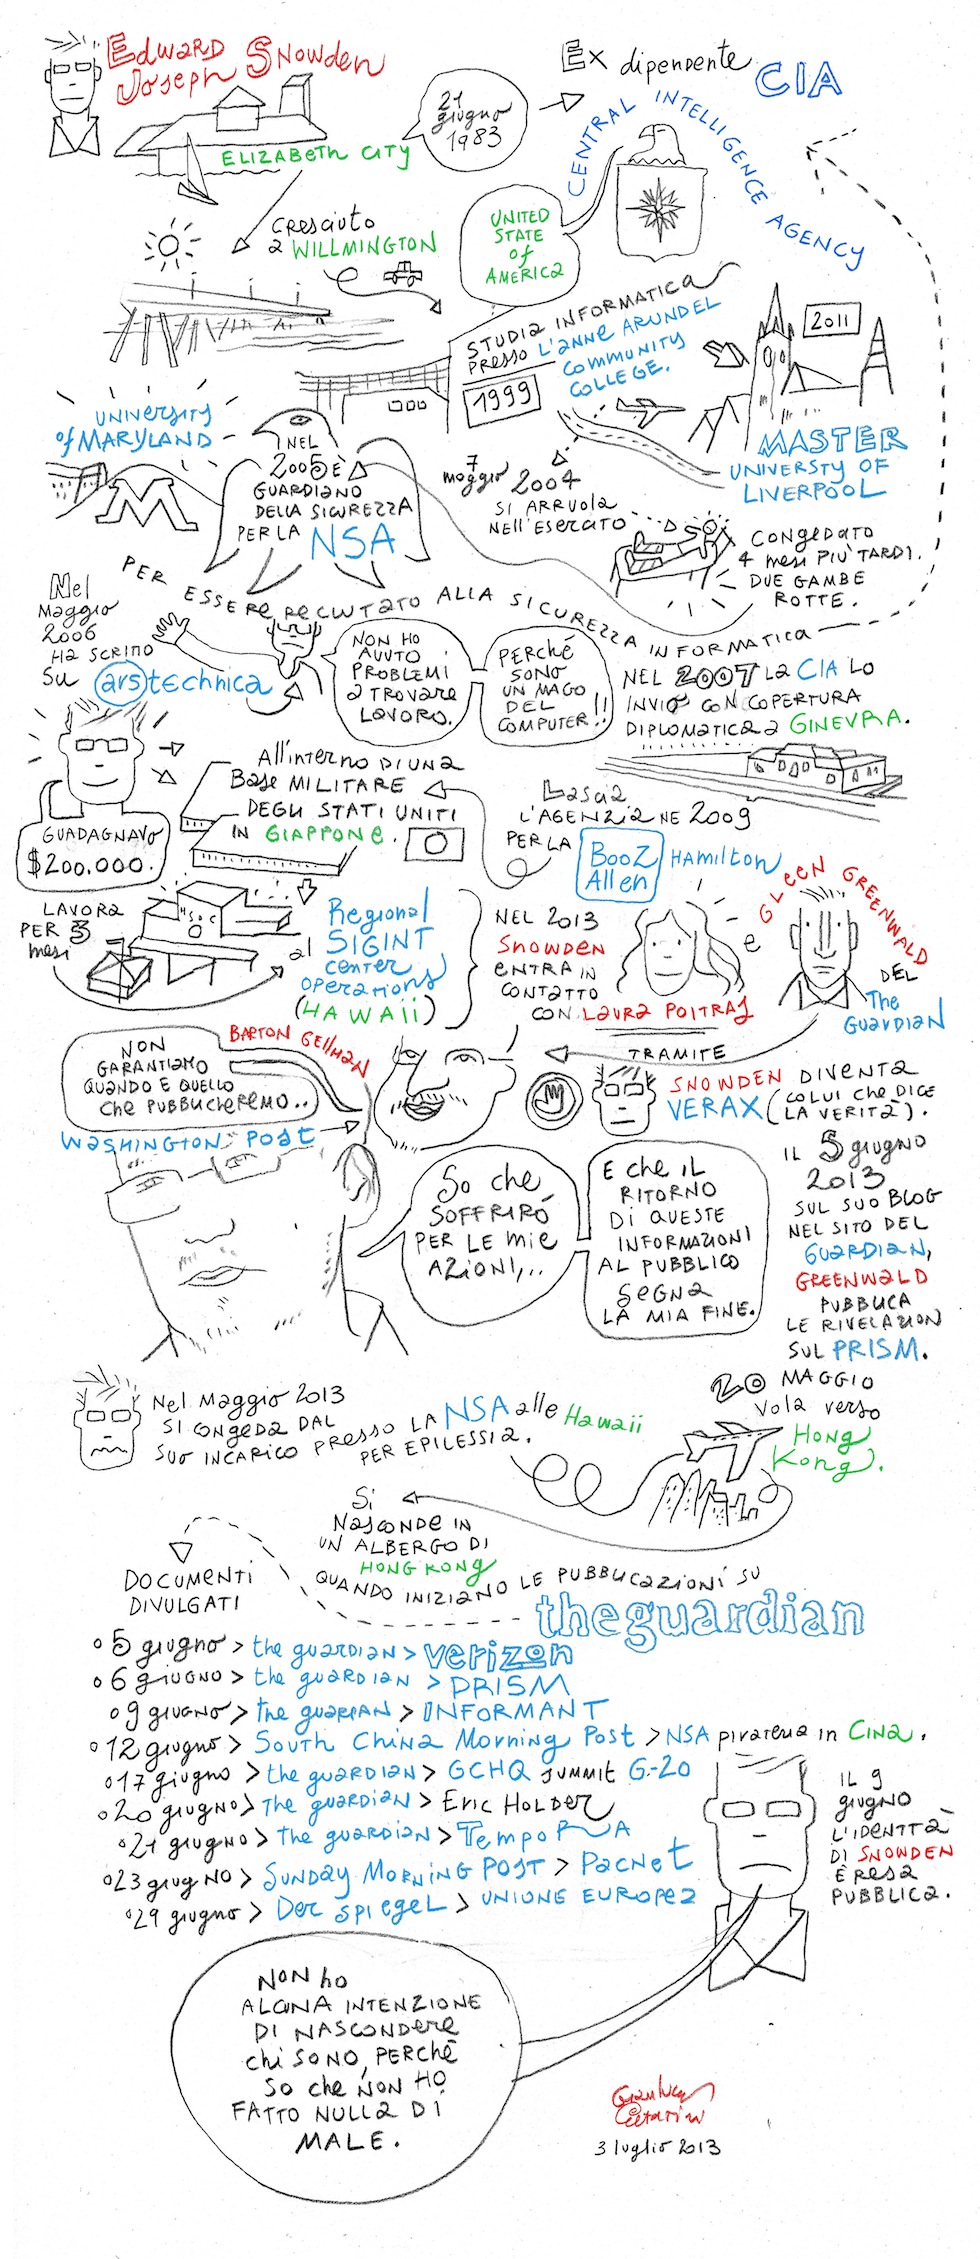 Edward
Joseph Snowden
ELIZABETH CITY
21
giugno
1983
Ex dipendente CIA
CENTRAL INTELLIGENCE AGENCY
UNITED
STATE
of
AMERICA
cresciuto
a WILLMINGTON
STUDIA INFORMATICA
PRESSO L'ANNE ARUNDEL
COMMUNITY
COLLEGE.
1999
2011
MASTER
UNIVERSTY OF
LIVERPOOL
UNIVERSITY
of MARYLAND
M
NEL
2005 È
GUARDIANO
DELLA SICUREZZA
PER LA NSA
7
maggio 2004
SI ARRUOLA
NELL'ESERCITO
CONGEDATO
4 mesi PIÙ TARDI.
DUE GAMBE
ROTTE.
PER ESSERE RECLUTATO ALLA SICUREZZA INFORMATICA
Nel
Maggio
2006
HA SCRITTO
SU arstechnica
NON HO
AVUTO
PROBLEMI
A TROVARE
LAVORO.
PERCHÉ
SONO
UN MAGO
DEL
COMPUTER!!
NEL 2007 LA CIA LO
INVIÒ CON COPERTURA
DIPLOMATICA A GINEVRA.
GUADAGNAVO
$200.000.
All'interno DI UNA
Base MILITARE
DEGLI STATI UNITI
IN GIAPPONE.
Lascia
L'AGENZIA NE 2009
PER LA BOOZ Allen HAMILTON
LAVORA
PER 3
mesi
al Regional
SIGINT
center
OPERATIONS
(HAWAII)
NEL 2013
SNOWDEN
ENTRA IN
CONTATTO
CON LAURA POITRAS
e GLEEN GREENWALD
DEL
The
GUARDIAN
TRAMITE
NON
GARANTIAMO
QUANDO E QUELLO
che PUBBLICHEREMO..
BARTON GELLMAN
WASHINGTON POST
SNOWDEN DIVENTA
VERAX (COLUI CHE DICE
LA VERITÀ).
So che
SOFFRIRÒ
PER LE mie
AZIONI,..
E che IL
RITORNO
DI QUESTE
INFORMAZIONI
AL PUBBLICO
SEGNA
LA MIA FINE.
IL 5 giugno
2013
SUL SUO BLOG
NEL SITO DEL
GUARDIAN,
GREENWALD
PUBBLICA
LE RIVELAZION
SUL PRISM.
Nel Maggio 2013
SI CONGEDA DAL
SUO INCARICO PRESSO LA NSA alle Hawaii
PER EPILESSIA.
20 MAGGIO
Vola verso
HONG
Kong.
Si
NASCONDE IN
UN ALBERGO DI
HONG KONG
QUANDO INIZIANO LE PUBBLICAZIONI SU
theguardian
DOCUMENTI
DIVULGATI
o 5 giugno > the guardian > verizon
o 6 giugno > the guardian > PRISM
o 9 giugno > the guarian > INFORMANT
o 12 giugno > South China Morning Post > NSA pirateria in Cina.
o 17 giugno > the guardian > GCHQ summit G-20
o 20 giugno > The guardian > Eric HOLDER
o 21 giugno > the guardian > TempoRA
o 23 giugno > SUNDAY MORNING POST > Pacnet
o 29 giugno > Der SpiegeL > UNIONE EUROPEA
IL 9
giugno
L'IDENTTÀ
DI SNOWDEN
È RESA
PUBBLICA.
NON ho
ALCUNA INTENZIONE
DI NASCONDERE
chi SONO, PERCHÉ
SO che NON HO
FATTO NULLA DI
MALE.
3 luglio 2013